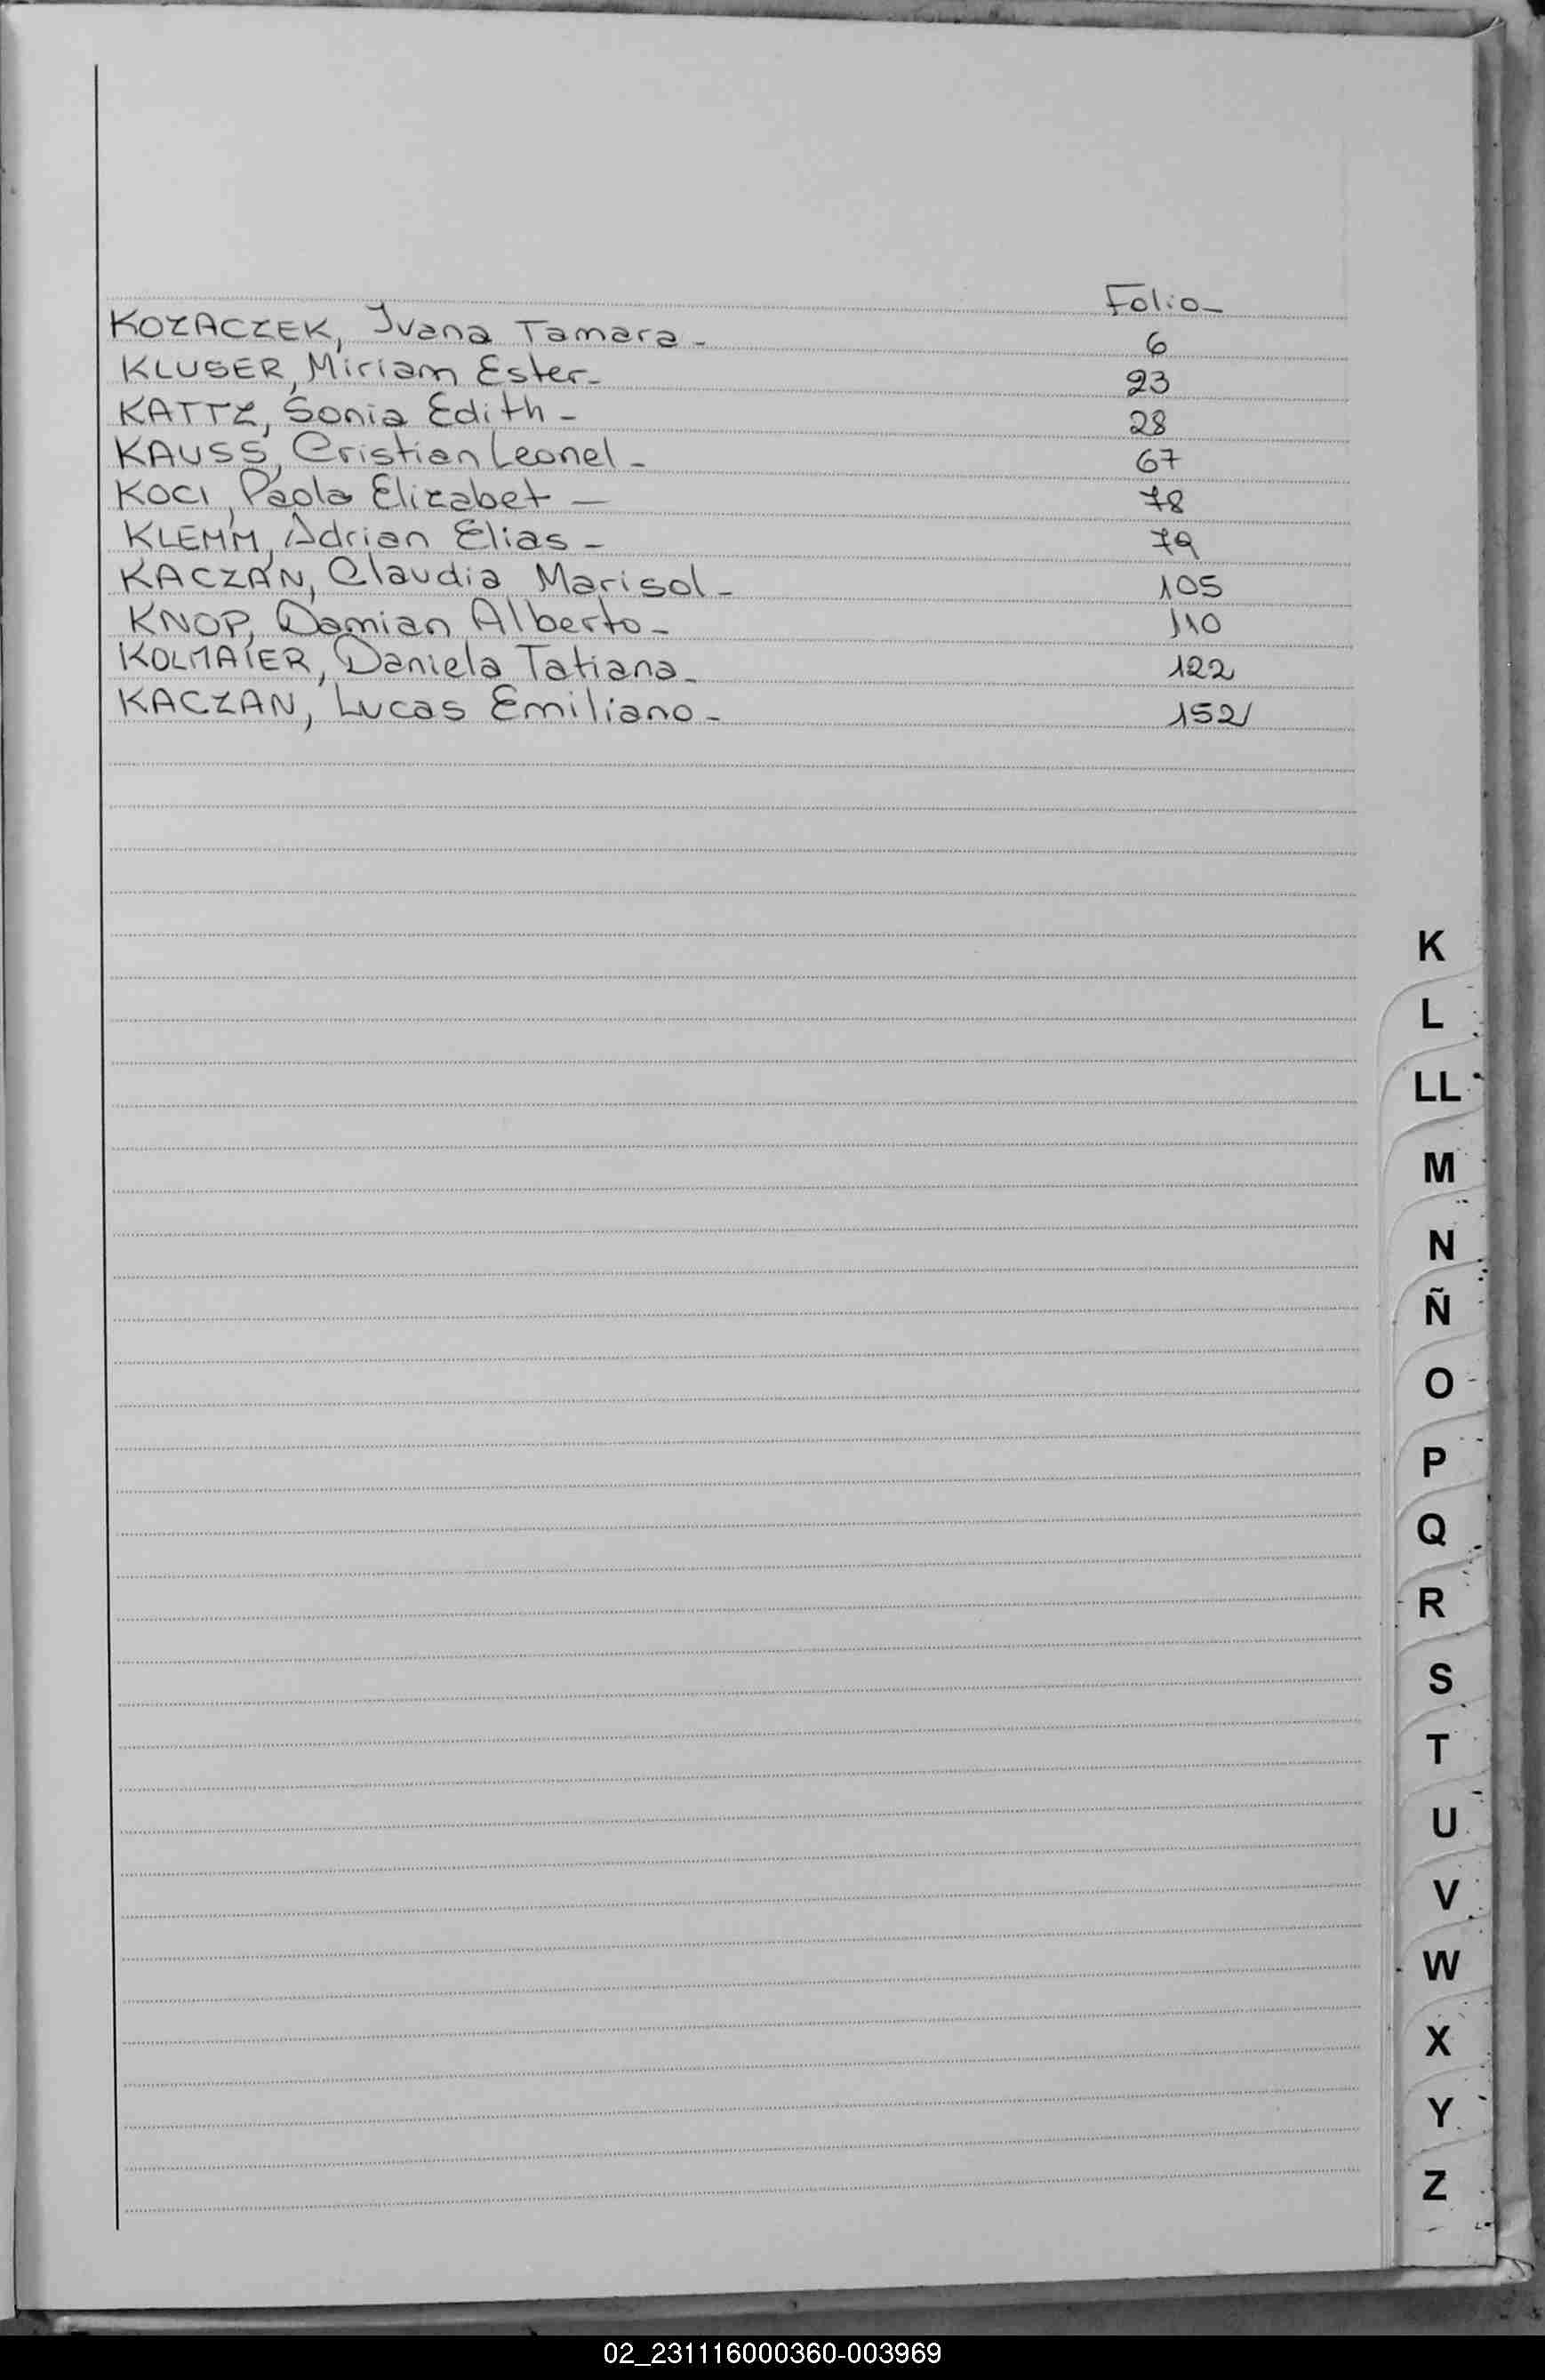 Folio-
KOZACZEK, Ivana Tamara - 6
KLUSER, Miriam Ester- 23
KATTZ, Sonia Edith - 28
KAUSS, Cristian Leonel - 67
KOCI, Paola Elizabet - 78
KLEMM, Adrian Elias - 79
KACZAN, Claudia Marisol - 105
KNOP, Damian Alberto - 110
KOLMAIER, Daniela Tatiana - 122
KACZAN, Lucas Emiliano - 152/
K
L
LL
M
N
Ñ
O
P
Q
R
S
T
U
V
W
X
Y
Z
02_231116000360-003969